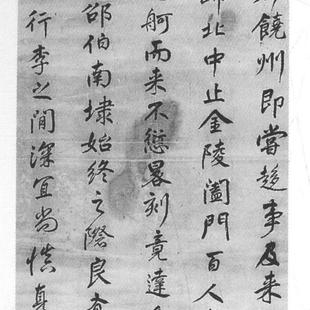 饶州即當趍事及来
北中止金陵阖門百人
舸而来不愆晷刻竟達
邵伯南埭始终之際良
行李之間深宜尚慎真